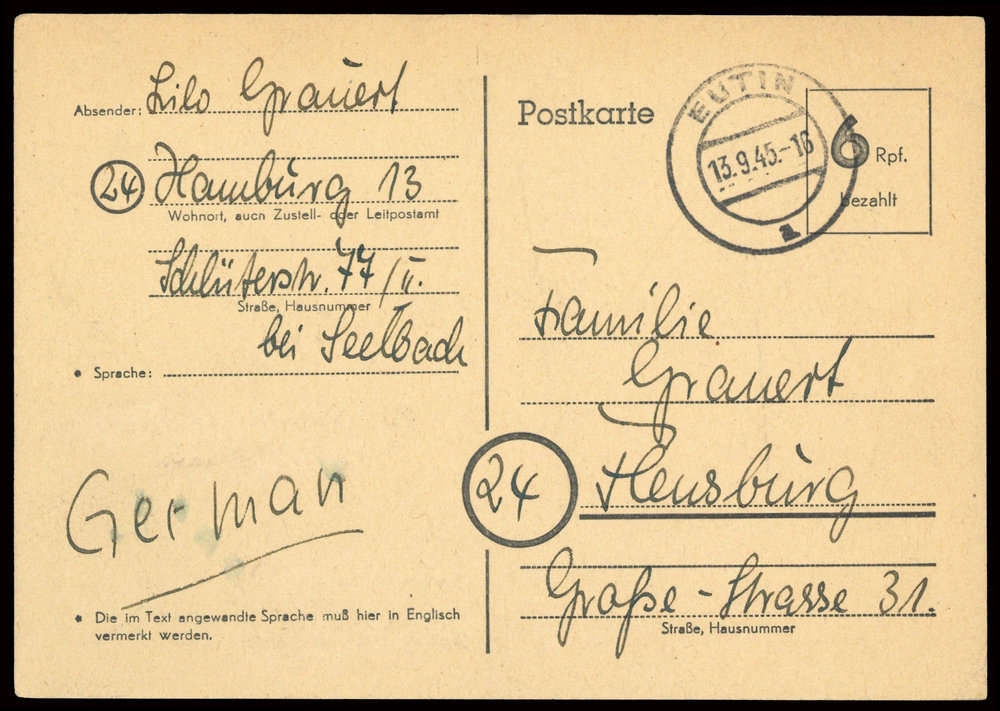 Absender: Lilo Grauert
24 Hamburg 13
Wohnort, auch Zustell- oder Leitpostamt
Schlüterstr. 77/II.
Straße, Hausnummer
bei Seelbach
* Sprache:
German
* Die im Text angewandte Sprache muß hier in Englisch
vermerkt werden.
Postkarte
EUTIN
13.9.45.-16
a
6 Rpf.
bezahlt
Familie
Grauert
24 Flensburg
Große-Strasse 31.
Straße, Hausnummer